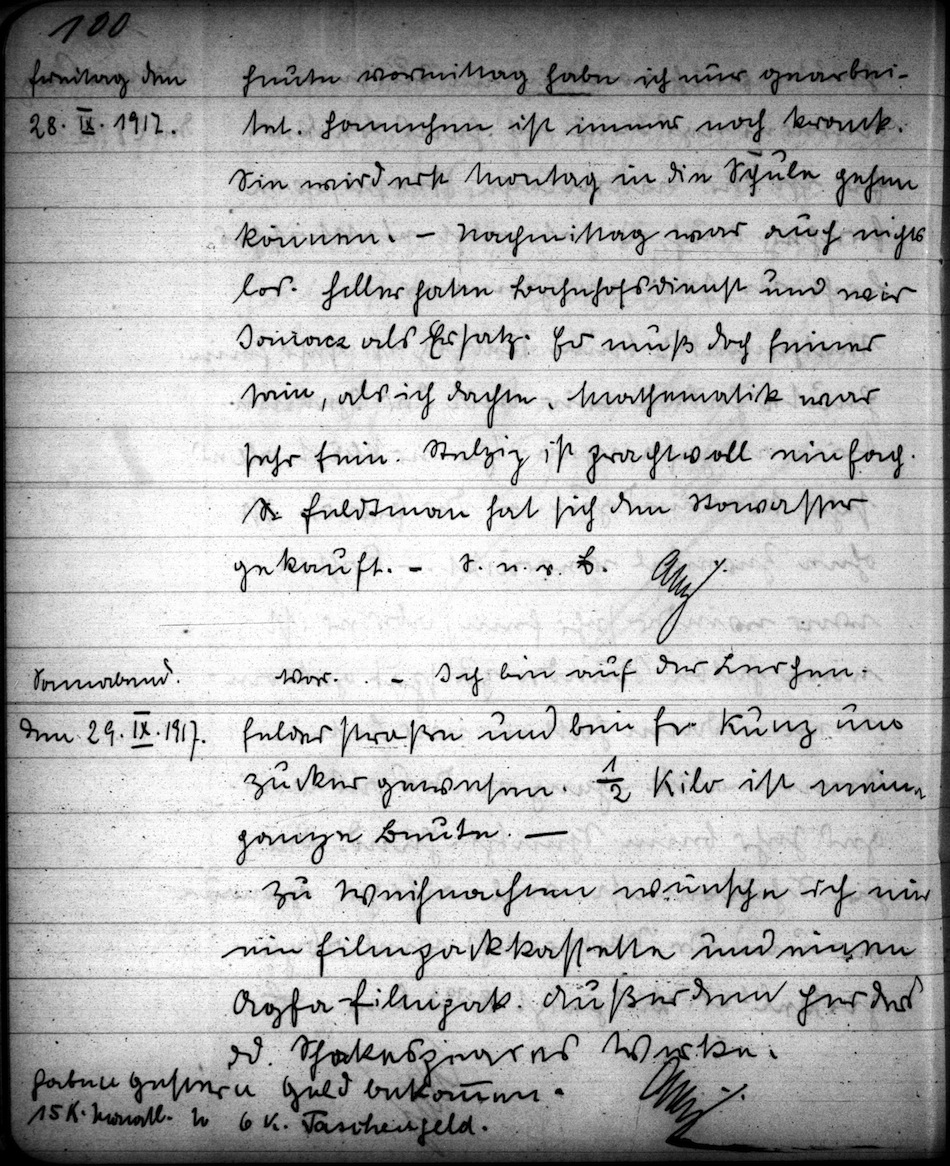 100
Freitag den
28. IX. 1917.
Heute vormittag habe ich nur gearbei-
tet. Hannchen ist immer noch krank.
Sie wird erst Montag in die Schule gehen
können. – Nachmittag war auch nichts
los. Heller hatte Bahnhofsdienst und wir
als Ersatz. Er muß doch feiner
sein, als ich dachte. Mathematik war
sehr fein. Stelzig ist prachtvoll einfach.
Feldtman hat sich den Stowasser
gekauft. – S. n. v. B.
Sonnabend.
den 29. IX. 1917.
Vor. . – Ich bin auf der Lerchen-
felderstraße und bei Fr. Kunz um
Zucker gewesen. 1/2 Kilo ist meine
ganze Beute. —
Zu Weihnachten wünsche ich mir
ein Filmpackkassette und einen
Agfa-Filmpak. Außerdem Herders
od. Shakespeares Werke.
Haben gestern Geld bekommen.
15 K. monatl. u 6 K. Taschengeld.